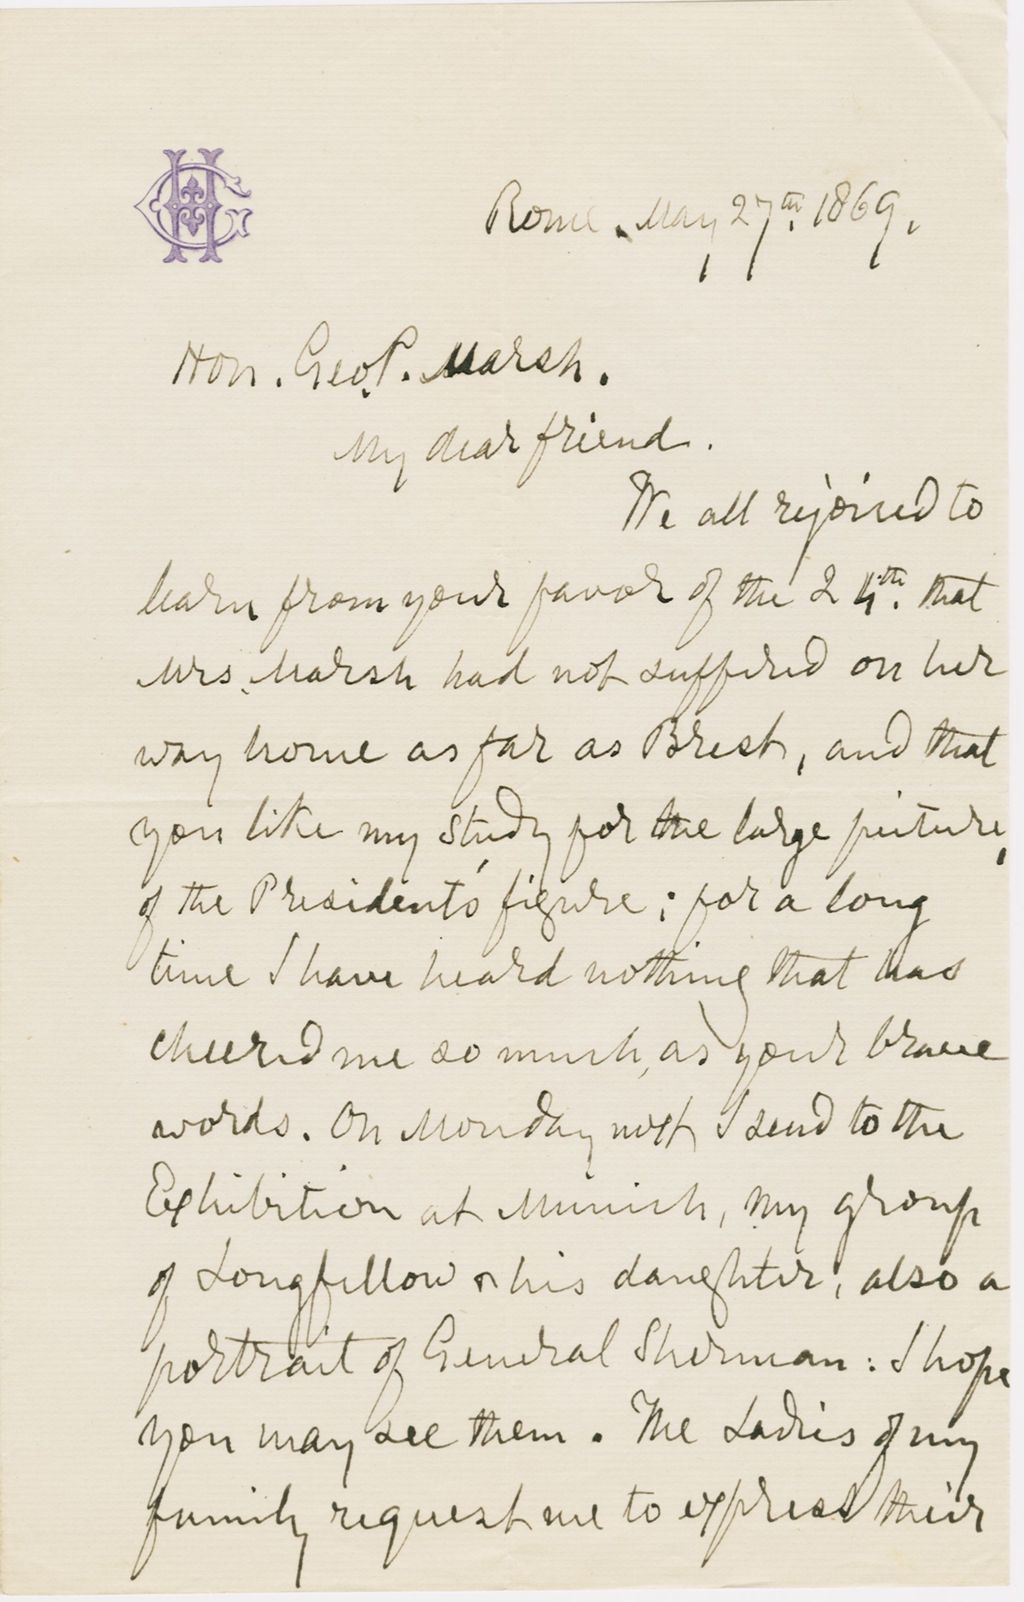 Rome. May 27th. 1869.
Hon. Geo. P. Marsh.
My dear friend.
We all rejoiced to
learn from your favor of the 24th. that
Mrs. Marsh had not suffered on her
way home as far as Brest, and that
you like my study for the large picture,
of the President's figure; for a long
time I have heard nothing that has
cheered me so much, as your brave
words. On Monday next I send to the
Exhibition at Munich, my group
of Longfellow & his daughter, also a
portrait of General Sherman: I hope
you may see them. The Ladies of my
family request me to express their